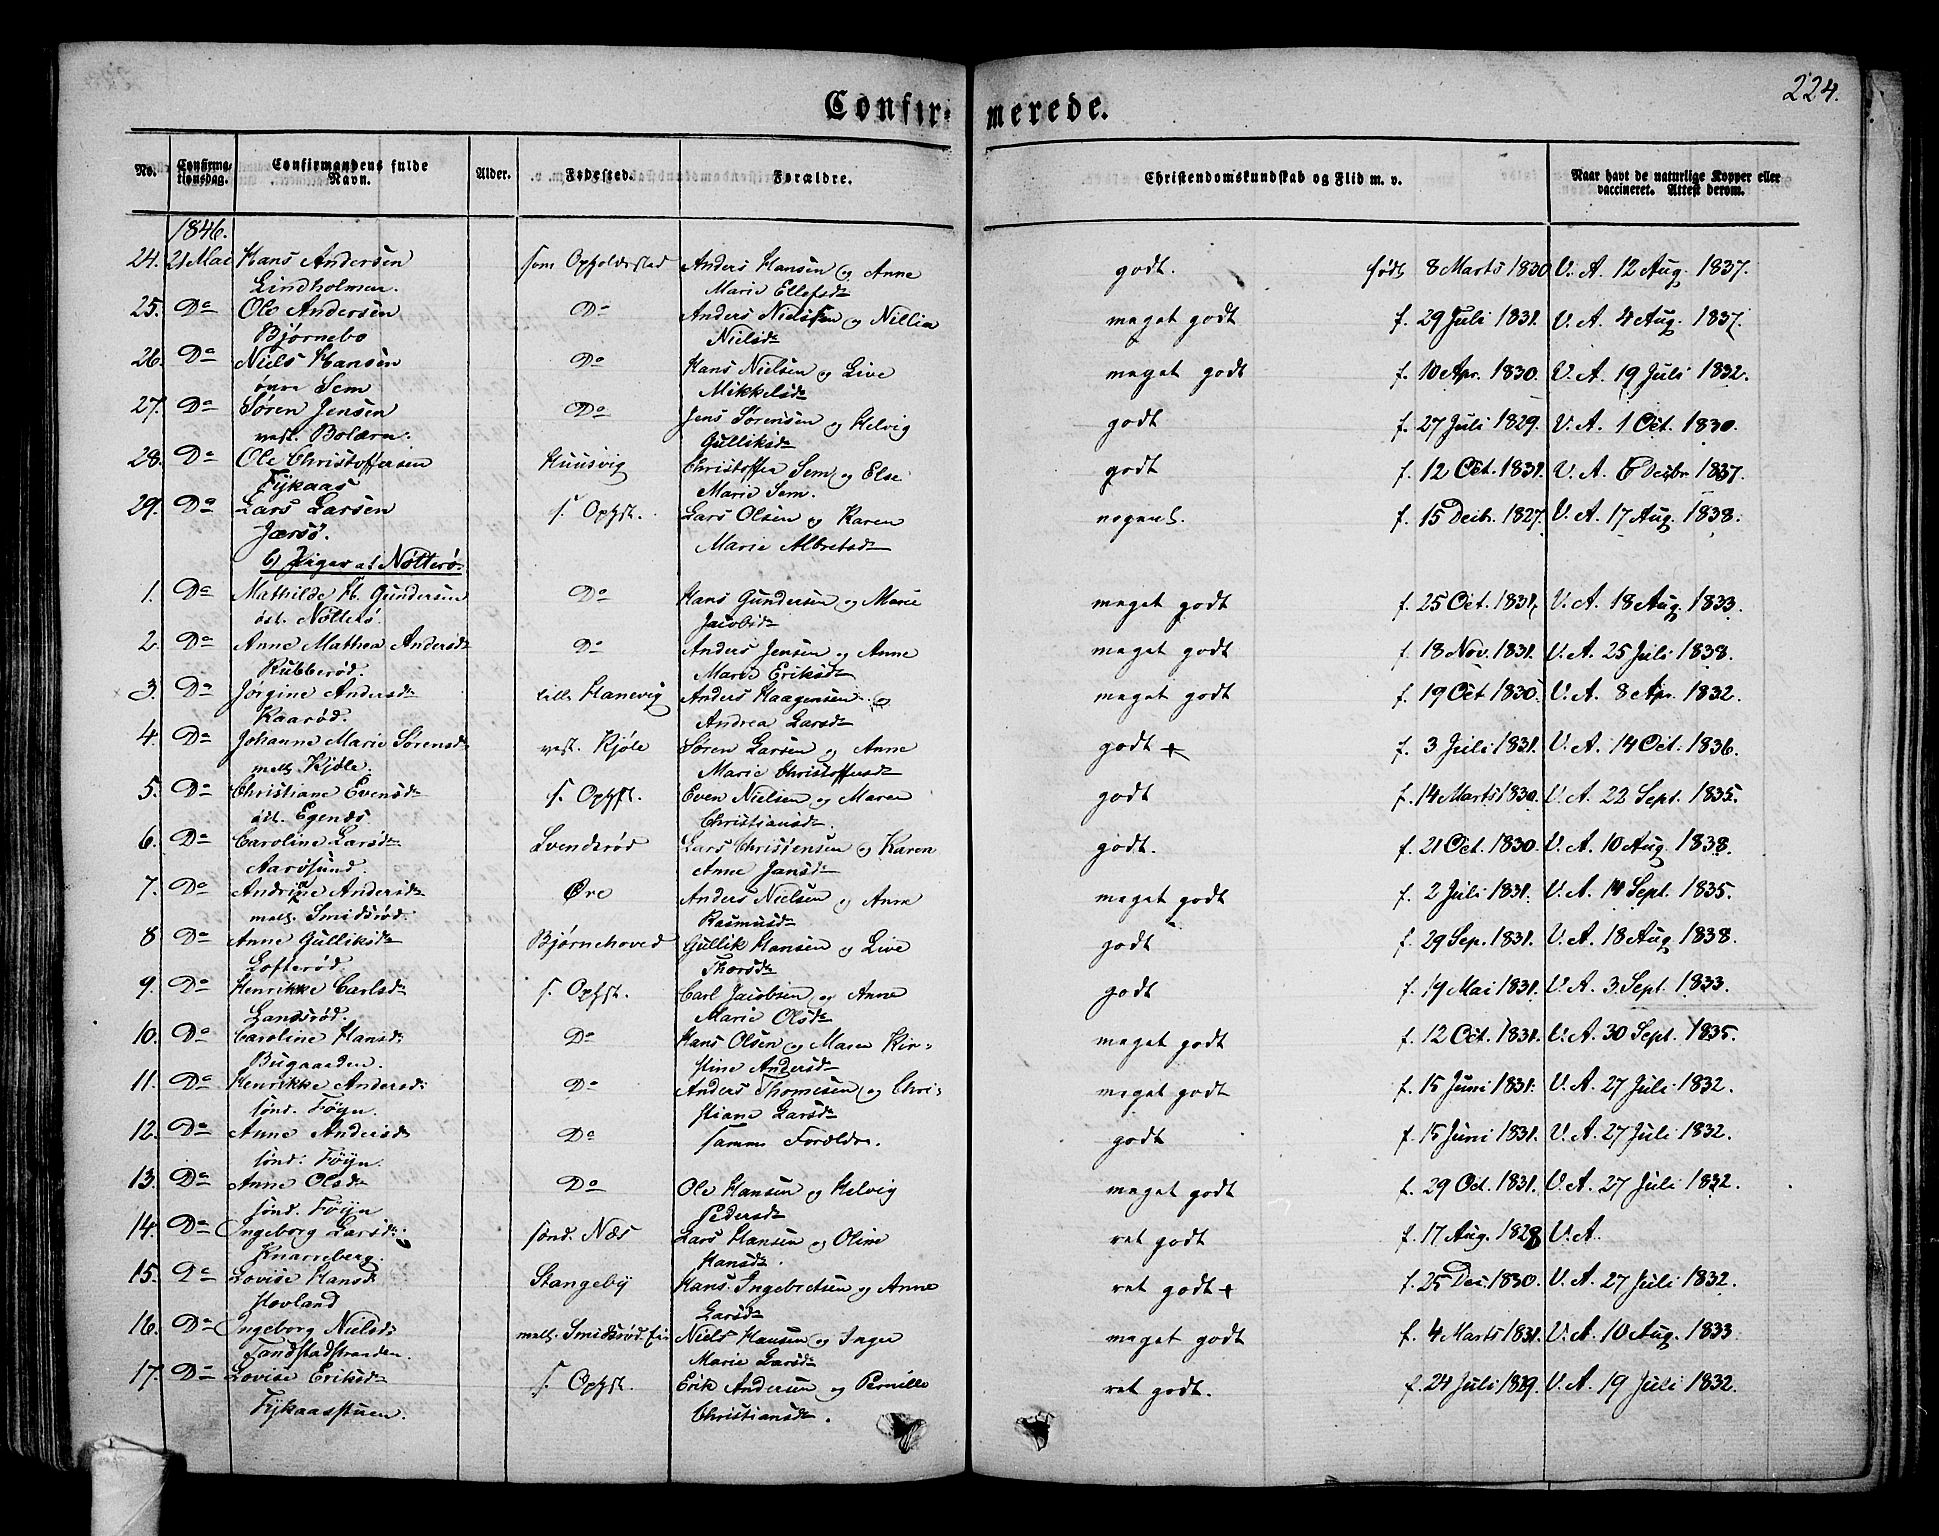 224.
Confirmerede.
No. Confirmationsdag. Confirmandens fulde Navn. Alder. Fødested. Forældre. Christendomskundskab og Flid m. v. Naar havt de naturlige Kopper eller vaccineret. Attest derom.
1846.
24. 21 Mai Hans Andersen som Opholdssted Anders Hansen og Anne godt. født 8 Marts 1830 V. A. 12 Aug. 1837.
Lindholmen. Marie Ellefsdr
25. Do Ole Andersen Do Anders Nielsen og Nillia meget godt f. 29 Juli 1831. V. A. 4 Aug. 1837.
Bjørnebo Nielsdr
26. Do Niels Hansen Do Hans Nielsen og Live meget godt f. 10 Apr. 1830. V. A. 19 Juli 1832.
øvre Sem Mikkelsdr
27. Do Søren Jensen Do Jens Sørensen og Helvig godt f. 27 Juli 1829. V. A. 1 Oct. 1830.
vest. Bolærn. Gulliksdr
28. Do Ole Christoffersen Huusvig Christoffer Sem og Else godt f. 12 Oct. 1831. V. A. 6 Decbr 1837.
Fykaas Marie Sem.
29. Do Lars Larsen s. Ophst. Lars Olsen og Karen nogenl. f. 15 Decbr. 1827. V. A. 17 Aug. 1838.
Jærsø. Marie Albretsdr
b) Piger af Nøtterø.
1. Do Mathilde H. Gundersen Do Hans Gundersen og Marie meget godt f. 25 Oct. 1831. V. A. 18 Aug. 1833.
øst. Nøtterø. Jacobsdr
2. Do Anne Mathea Andersdr Do Anders Jensen og Anne meget godt f. 18 Nov. 1831. V. A. 25 Juli 1838.
Rubberød. Marie Eriksdr
3. Do Jørgine Andersdr lille Hanevig Anders Haagensen og meget godt f. 19 Oct 1830. V. A. 8 Apr. 1832.
Kaarød. Andrea Larsdr
4. Do Johanne Marie Sørensdr vest. Kjøle Søren Larsen og Anne godt + f. 3 Juli 1831. V. A. 14 Oct. 1836.
mell. Kjøle. Marie Christoffersdr
5. Do Christiane Evensdr s. Ophst. Even Nielsen og Maren godt f. 14 Marts 1830. V. A. 22 Sept. 1835.
øst. Egenæs Christiansdr.
6. Do Caroline Larsdr Svendsrød Lars Christensen og Karen godt. f. 21 Oct. 1830. V. A. 10 Aug. 1838.
Aarøsund. Anne Jansdr
7. Do Andrine Andersdr Øre Anders Nielsen og Anne meget godt f. 2 Juli 1831. V. A. 14 Sept. 1835.
mell. Smidsrød. Rasmusdr
8 Do Anne Gulliksdr Bjørnehoved Gullik Hansen og Live godt f. 29 Sep. 1831. V. A. 18 Aug 1838.
Lofterød. Thorsdr
9. Do Henrikke Carlsdr s. Ophst. Carl Jacobsen og Anne godt f. 19 Mai 1831. V. A. 3 Sept. 1833.
Landsrød. Marie Olsdr
10. Do Caroline Hansdr Do Hans Olsen og Maren Kir- meget godt f. 12 Oct. 1831. V. A. 30 Sept. 1835.
Bugaarden. stine Andersdr
11. Do Henrikke Andersdr Do Anders Thomesen og Chri- meget godt f. 15 Juni 1831. V. A. 27 Juli 1832.
sønd. Føyn. stiane Larsdr
12. Do Anne Andersdr Do samme Forældre. godt f. 15 Juni 1831. V. A. 27 Juli 1832.
sønd. Føyn.
13. Do Anne Olsdr Do Ole Hansen og Helvig meget godt f. 29 Oct. 1831. V. A. 27 Juli 1832.
sønd. Føyn Pedersdr
14. Do Ingeborg Larsdr sønd. Næs Lars Hansen og Oline ret godt f. 17 Aug. 1828 V. A.
Knarreberg. Hansdr.
15. Do Lovise Hansdr Stangeby Hans Ingebretsen og Anne ret godt + f. 25 Dec. 1830. V. A. 27 Juli 1832.
Hovland Larsdr
16. Do Ingeborg Nielsdr mell. Smidsrød Niels Hansen og Inger meget godt f. 4 Marts 1831. V. A. 10 Aug. 1833
Tandstadstranden. Marie Larsdr
17. Do Lovise Eriksdr s. Ophst. Erik Andersen og Pernille ret godt. f. 24 Juli 1829. V. A. 19 Juli 1832.
Fykaasstuen. Christiansdr.